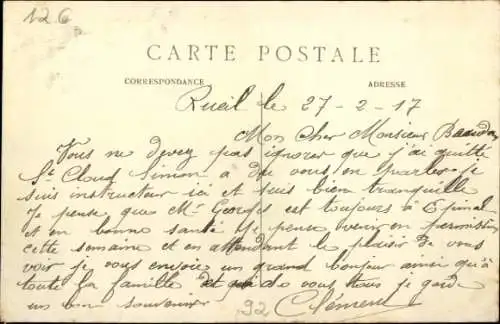 126
CARTE POSTALE
CORRESPONDANCE
ADRESSE
Rueil le 27-2-17
Mon Cher Monsieur
Vous ne devez pas ignorer que j'ai quitté
St Cloud Simon a du vous en parler. je
suis instructeur ici et suis bien tranquille
Je pense que Mr Georges est toujours à Epinal
et en bonne santé je pense venir en permission
cette semaine et en attendant le plaisir de vous
voir je vous envoie un grand bonjour ainsi qu'à
toute la famille et de vous tous je garde
un bon souvenir
92
Clément